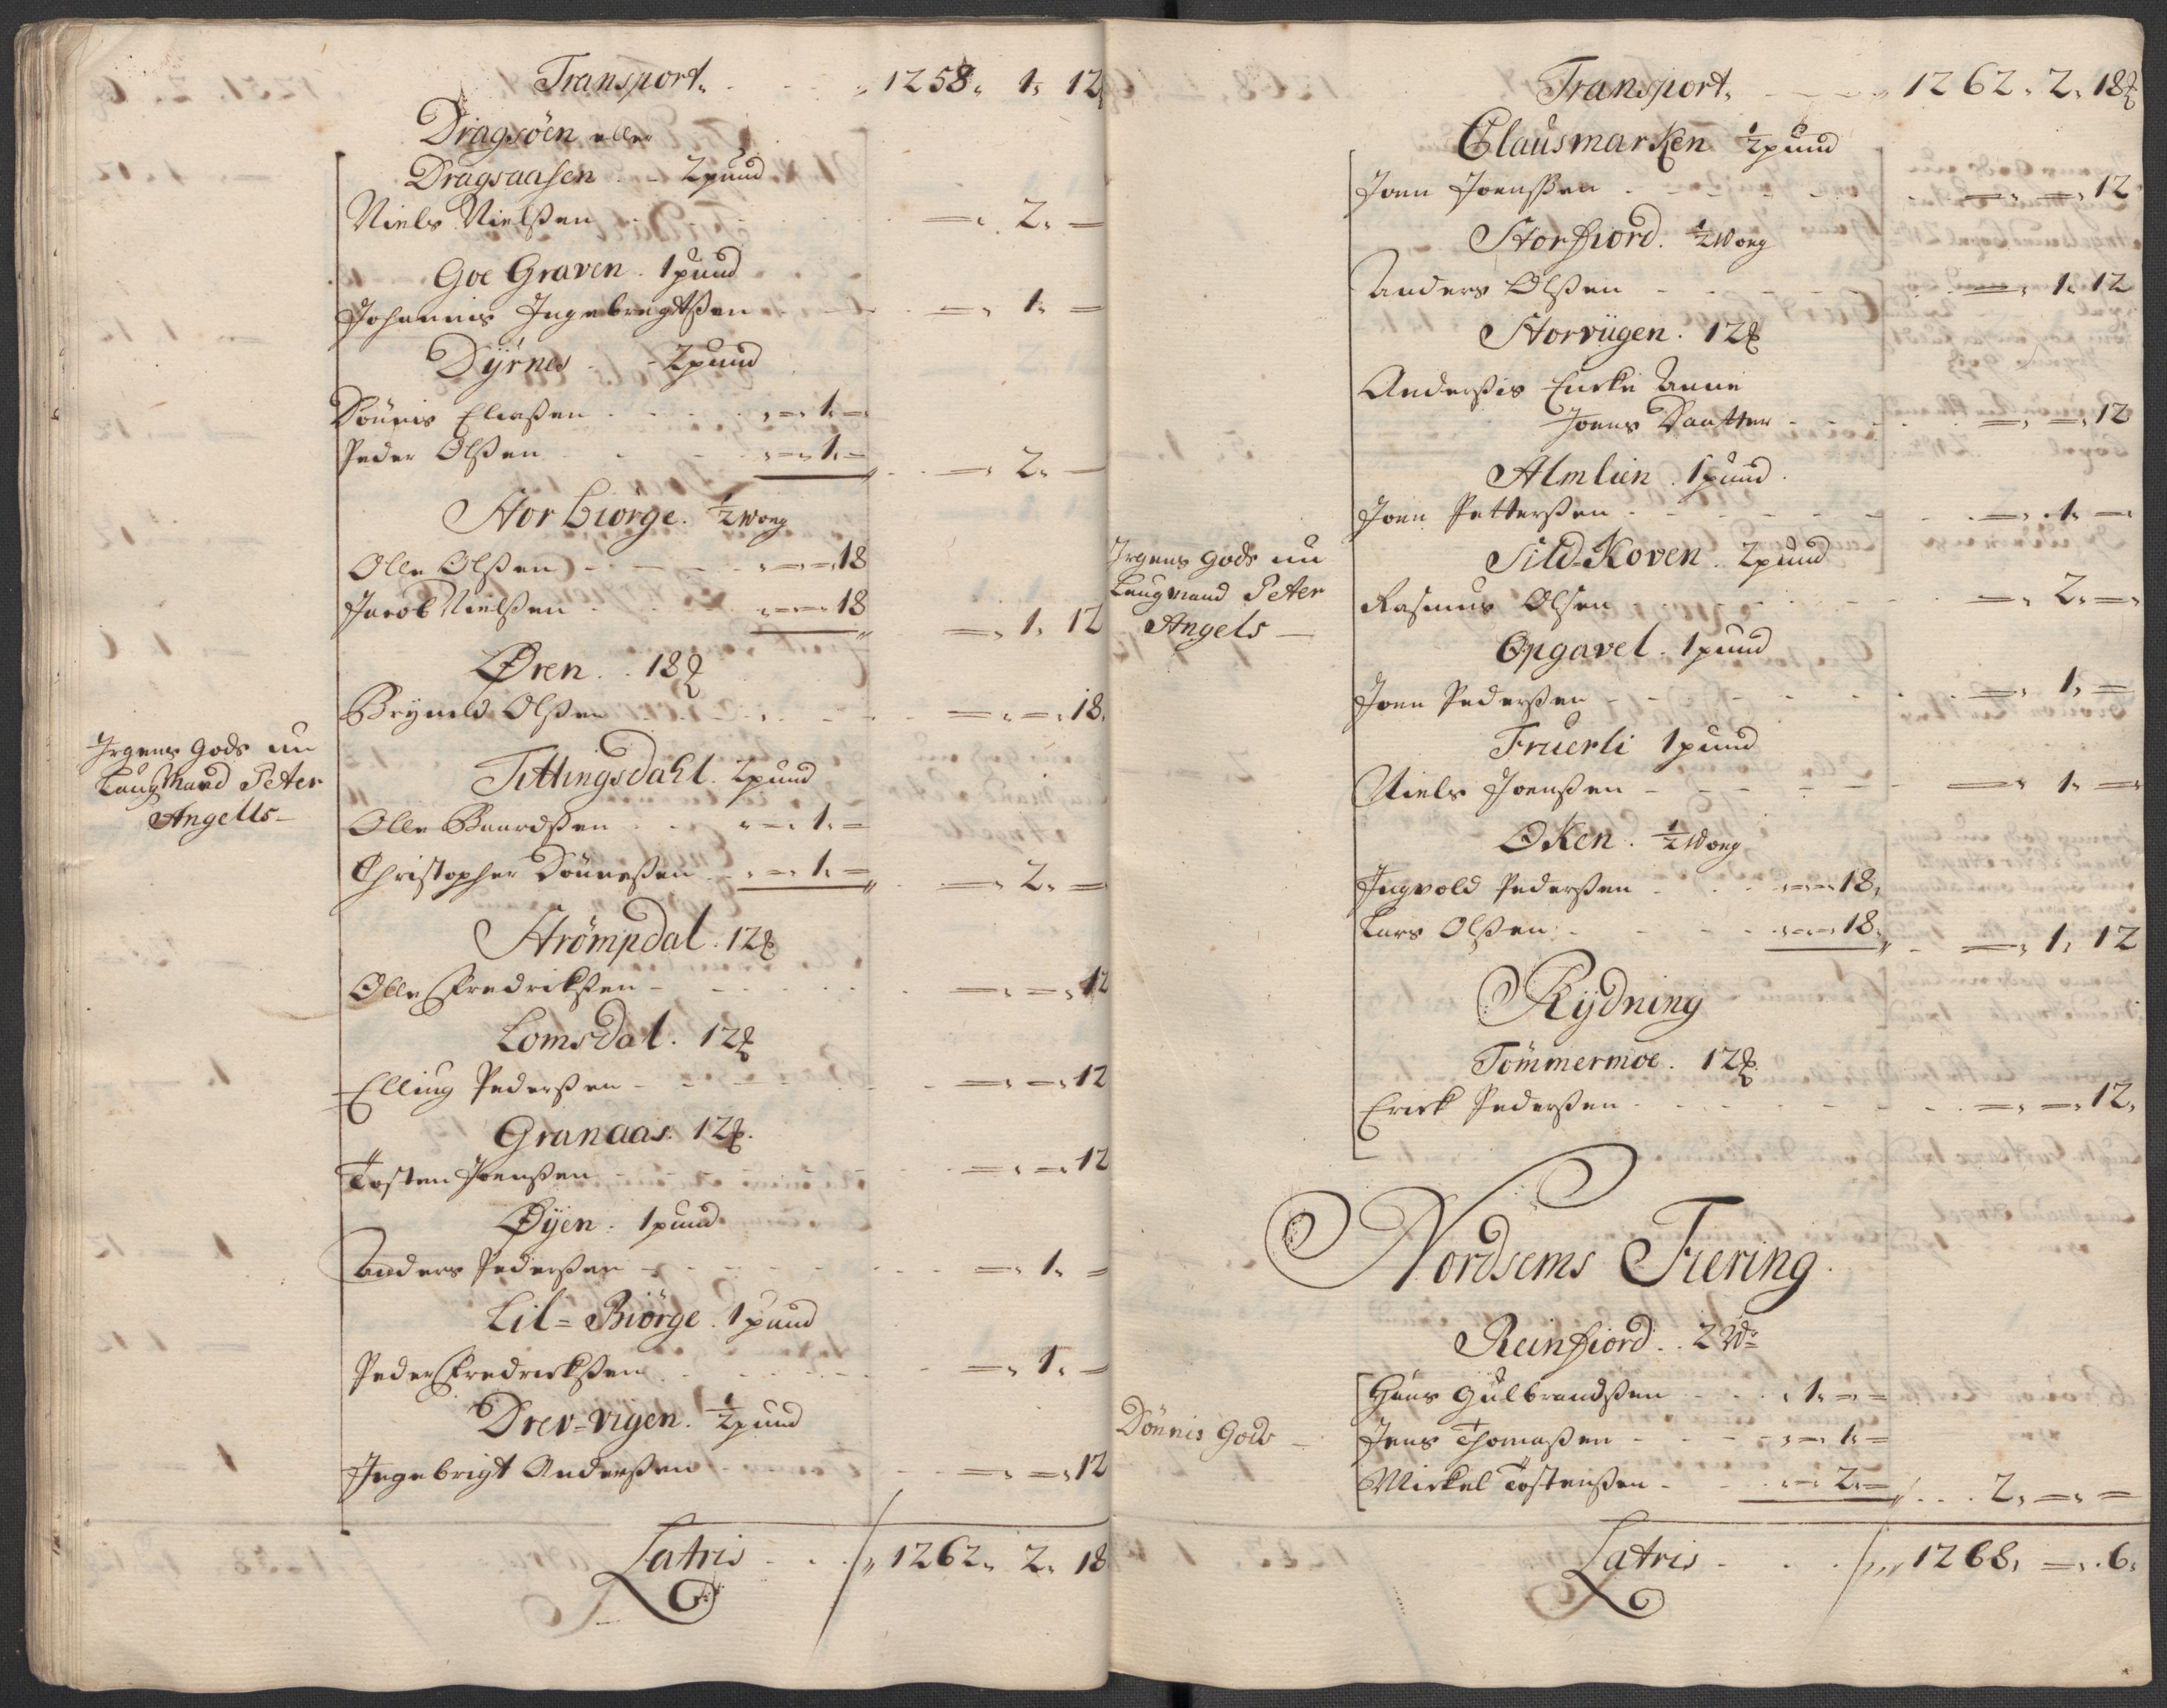 Transport. 1258. 1. 12
Dragsöen eller
Dragsaasen 2 pund
Niels Nielßen =. 2. =
Goe Graven. 1 pund
Johannis Ingebregtßen =. 1. =
Dÿrnes 2 pund
Dönnis Eliaßen =. 1. =
Peder Olßen =. 1. = =. 2. =
Storbiörge. ½ Wog
Olle Olßen =. =. 18
Jacob Nielßen =. =. 18 =. 1. 12
Øren. 18 ℔
Brÿnild Olßen =. =. 18.
Irgens Gods nu
Laugmand Peter
Angells
Tittingsdahl. 2 pund
Olle Baardßen =. 1. =
Christopher Dönneßen =. 1. = =. 2. =
Strömpdal. 12 ℔
Olle Fredrikßen =. =. 12
Lomsdal. 12 ℔
Elling Pederßen =. =. 12
Granaas. 12 ℔.
Tosten Joenßen =. =. 12
Øÿen. 1 pund
Anders Pederßen =. 1. =
Lil=Biörge. 1 pund
Peder Fredrickßen =. 1. =
Drev=vigen. ½ pund
Ingebrigt Anderßen =. =. 12
Latris 1262. 2. 18
Transport. 1262. 2. 18 ℔
Clausmarken ½ pund
Joen Joenßen =. =. 12
Storfiord. ½ Wog
Anders Olßen =. 1. 12
Storvügen. 12 ℔
Anderßis Encke Anne
Joens Daatter =. =. 12
Almlien. 1 pund.
Joen Petterßen =. 1. =
Irgens Gods nu
Laugmand Peter
Angels
Sild=Koven. 2 pund
Rasmus Olsen =. 2. =.
Opgavel. 1 pund
Joen Pederßen =. 1. =
Fruerli 1 pund
Niels Joenßen =. 1. =
Oken. ½ Wog
Ingvold Pederßen =. =. 18.
Lars Olßen =. =. 18. =. 1. 12
Rÿdning
Tömmermoe. 12 ℔.
Erick Pederßen =. =. 12.
Nordsems Fiering.
Reinfiord. 2 Wr
Dönnis Gods
Hans Gulbrandßen . 1. =. =
Jens Thomaßen =. 1. =
Mickel Tostenßen =. 2. = 2. =. =
Latris 1268. =. 6.